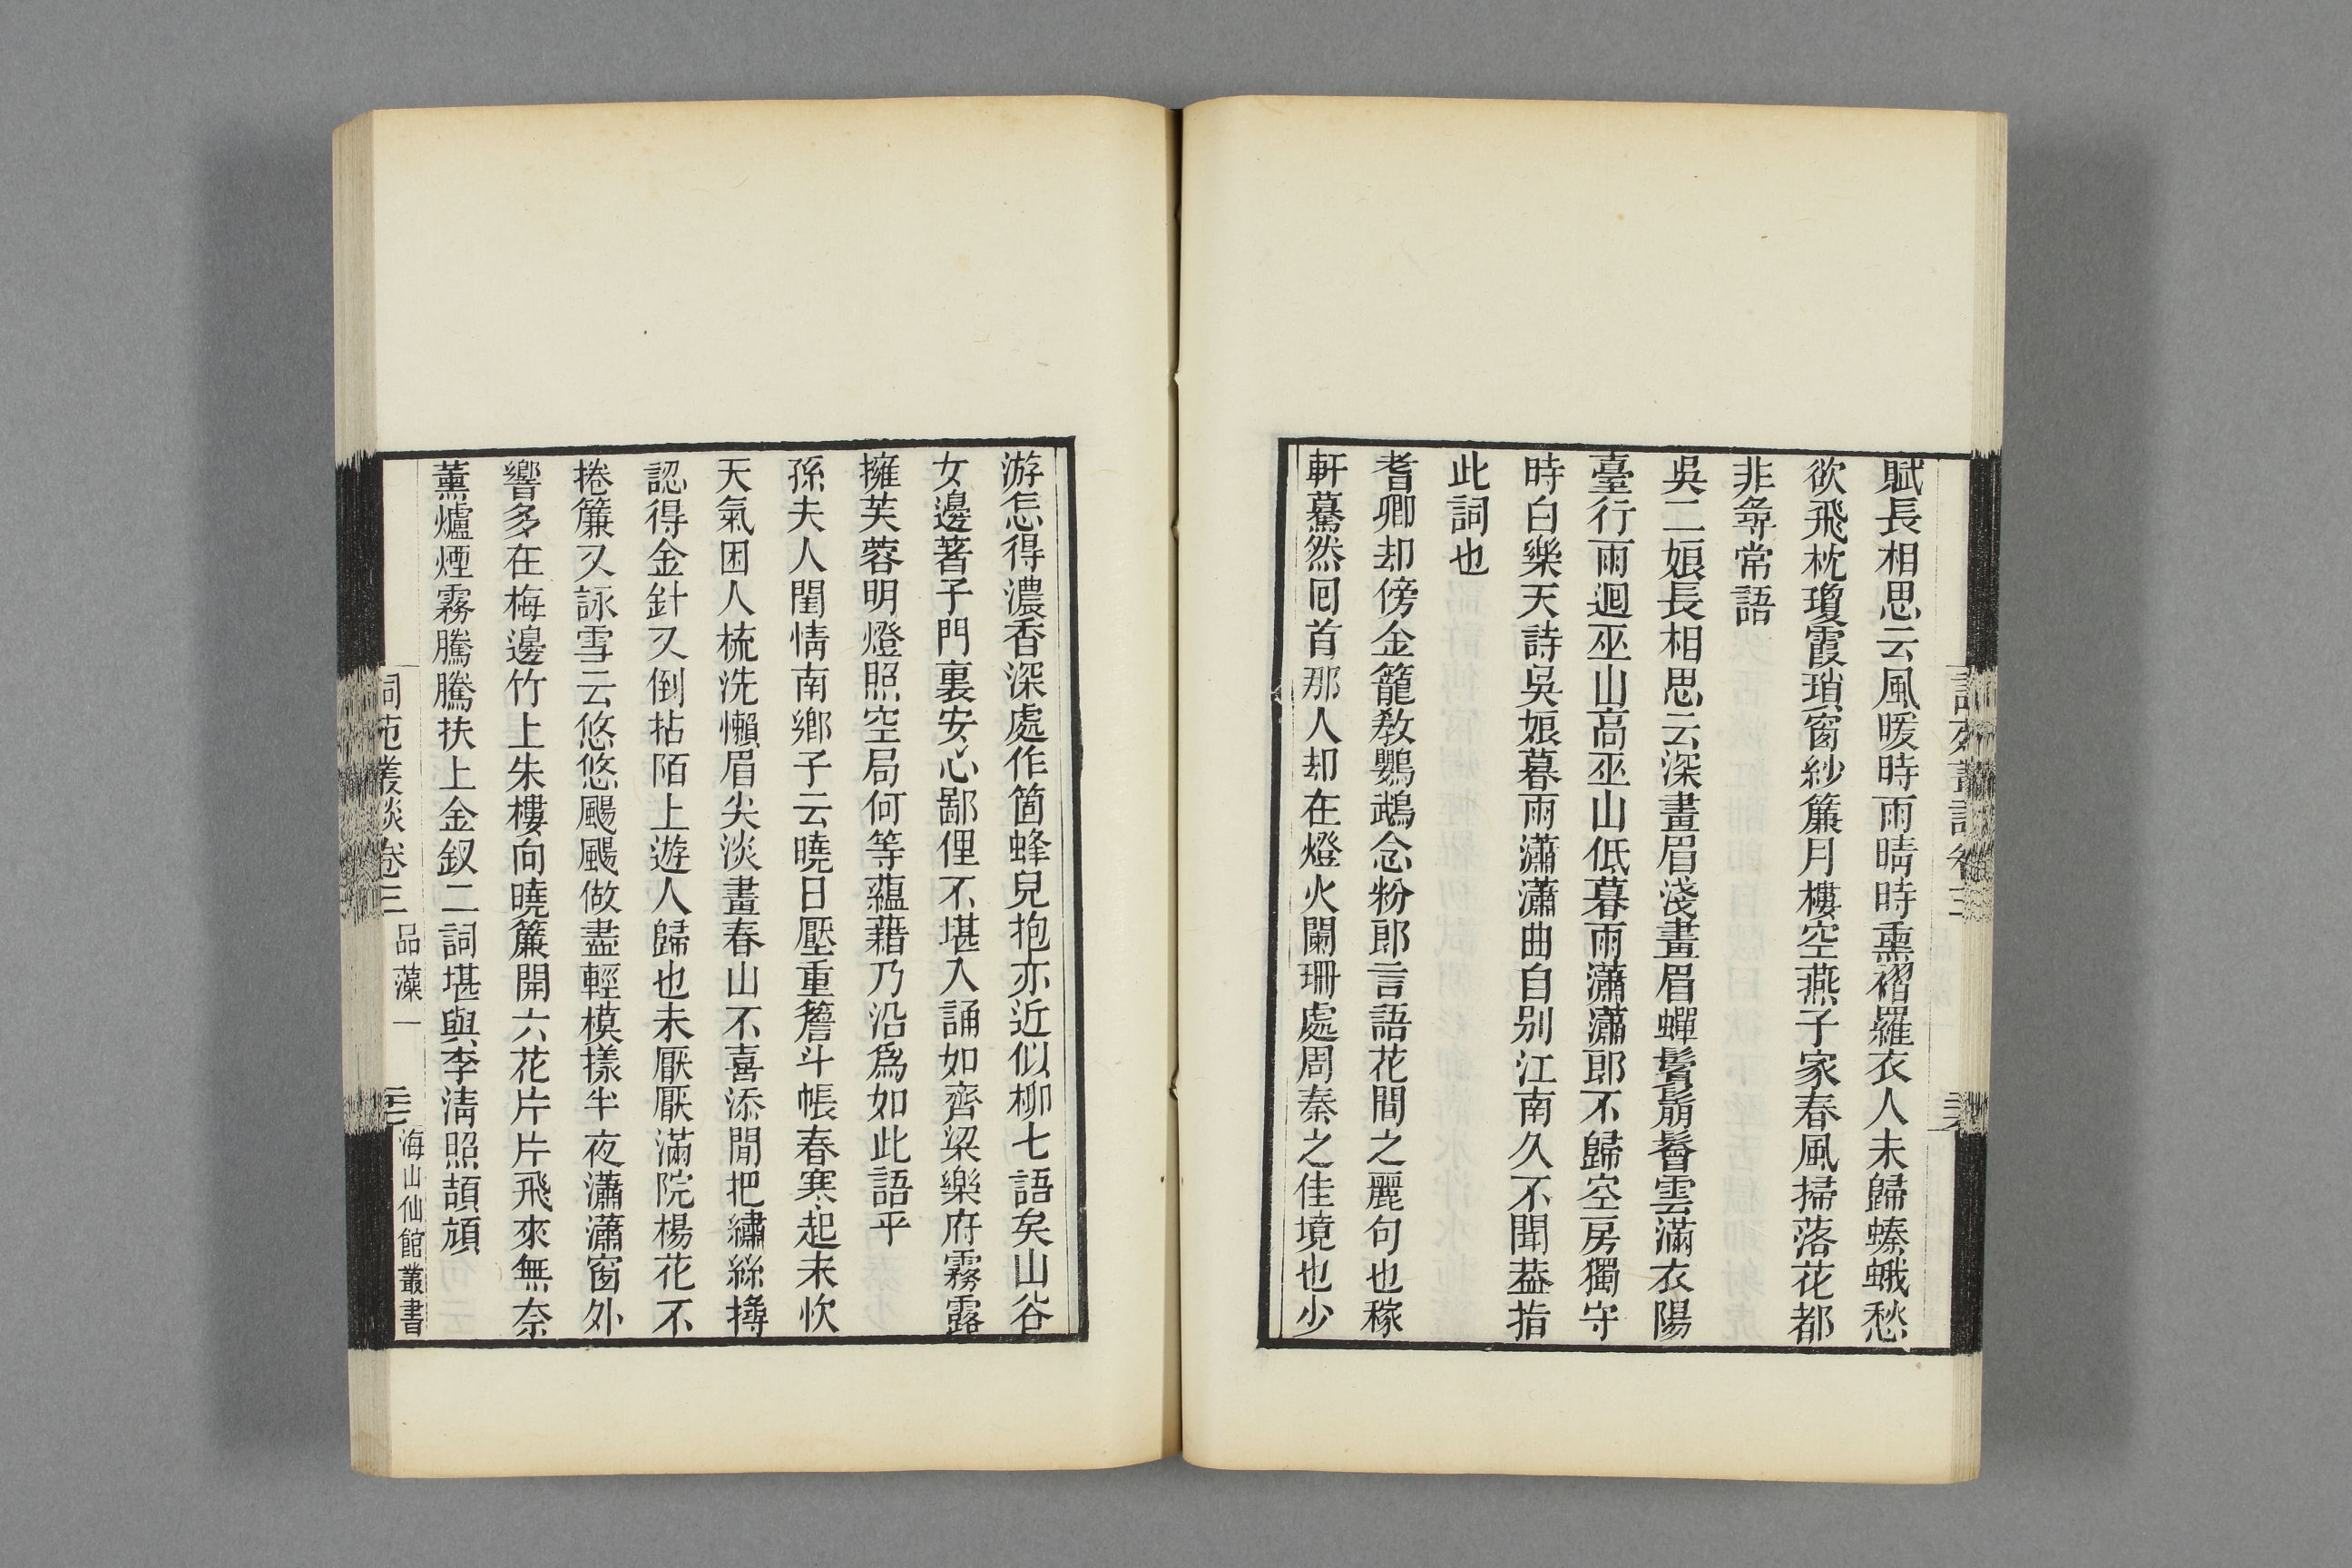 賦長相思云風暖時雨晴時熏褶羅衣人未歸螓蛾愁
欲飛枕瓊霞瑣窗紗簾月樓空燕子家春風掃落花都
非尋常語
吳二娘長相思云深畫眉淺畫眉蟬鬢鬅鬙雲滿衣陽
臺行雨迴巫山高巫山低暮雨瀟瀟郎不歸空房獨守
時白樂天詩吳娘暮雨瀟瀟曲自别江南久不聞葢指
此詞也
耆卿却傍金籠敎鸚鵡念粉郎言語花間之麗句也稼
軒驀然囘首那人却在燈火闌珊處周秦之佳境也少
游怎得濃香深處作箇蜂兒抱亦近似柳七語矣山谷
女邊著子門裏安心鄙俚不堪入誦如齊梁樂府霧露
擁芙蓉明燈照空局何等蘊藉乃沿爲如此語乎
孫夫人閨情南鄉子云曉日壓重簷斗帳春寒起未忺
天氣困人梳洗懶眉尖淡畫春山不喜添閒把繡絲撏
認得金針又倒拈陌上遊人歸也未厭厭滿院楊花不
捲簾又詠雪云悠悠颺颺做盡輕模樣半夜瀟瀟窗外
響多在梅邊竹上朱樓向曉簾開六花片片飛來無奈
薰爐煙霧騰騰扶上金釵二詞堪與李淸照頡頏
詞苑叢談卷三 品藻一 海山仙館叢書